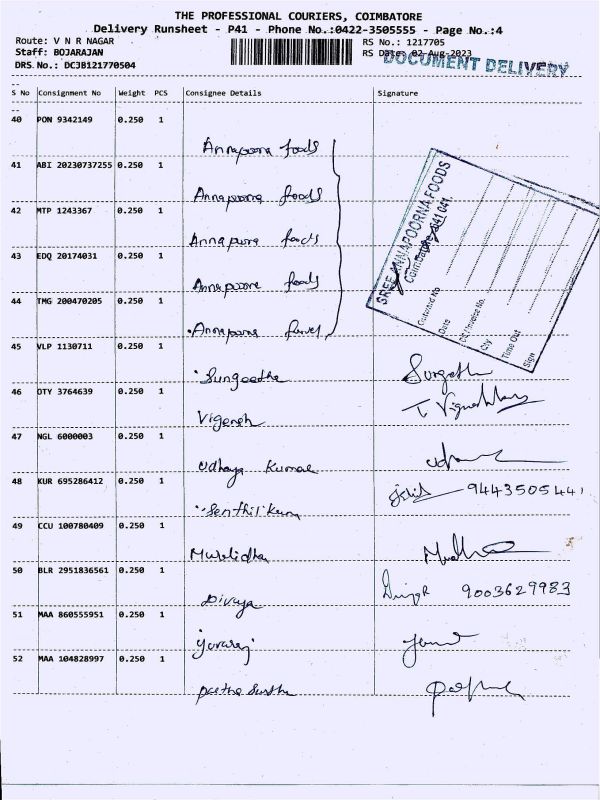 THE PROFESSIONAL COURIERS, COIMBATORE
Delivery Runsheet - P41 - Phone No.:0422-3505555 - Page No.:4
Route: V N R NAGAR
RS No.: 1217705
Staff: BOJARAJAN
RS Date: 02-Aug-2023
DOCUMENT DELIVERY
DRS No.: DCJB121770504
S No Consignment No Weight PCS Consignee Details Signature
40 PON 9342149 0.250 1
Annapoorna foods
41 ABI 20230737255 0.250 1
Annapoorna foods
42 MTP 1243367 0.250 1
Annapoorna foods
43 EDQ 20174031 0.250 1
Annapoorna foods
44 TMG 200470205 0.250 1
Annapoorna
SREE ANNAPOORNA FOODS
Coimbatore 641 041.
Date
Qty
Time Out
Sign
45 VLP 1130711 0.250 1
Sungeetha
46 OTY 3764639 0.250 1
Vigensh
47 NGL 6000003 0.250 1
Udhaya Kumar
48 KUR 695286412 0.250 1
9443505441
Senthil Kum
49 CCU 100780409 0.250 1
Muralidhar
50 BLR 2951836561 0.250 1
9003629983
Divaya
51 MAA 860555951 0.250 1
yuvaraj
52 MAA 104828997 0.250 1